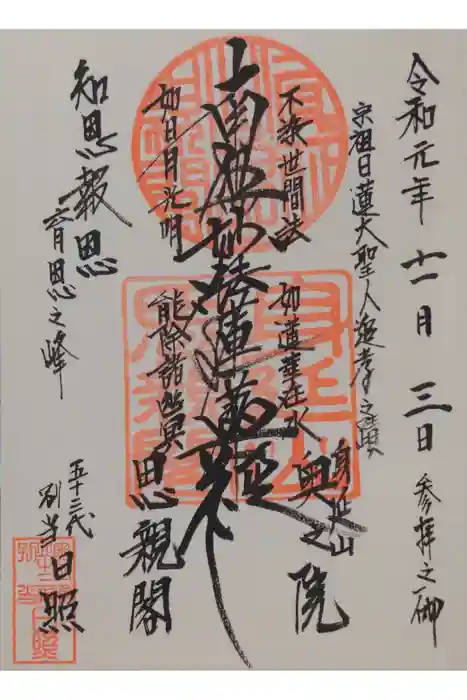 令和元年十一月三日 参拝之御
宗祖日蓮大聖人追孝之霊場
身延山
奥之院
不染世間法
如蓮華在水
南無妙法蓮華経
如日月光明
能除諸幽冥
思親閣
知恩報恩
育恩之峰
五十三代
別当日照